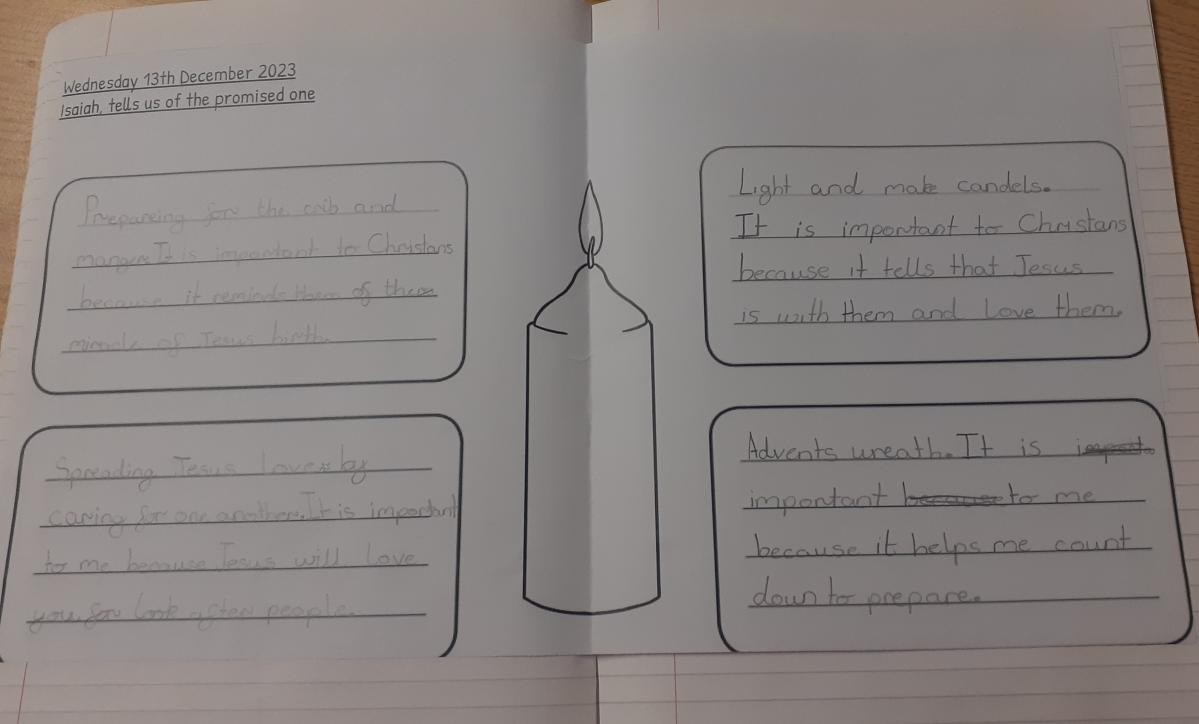 Wednesday 13th December 2023
Isaiah, tells us of the promised one
Prepareing for the crib and
manger. It is important to Christans
because it reminds them of
miracle of Jesus birth.
Spreading Jesus love by
caring for one another. It is important
to me because Jesus will love
you for look after people.
Light and make candels.
It is important to Christans
because it tells that Jesus
is with them and love them.
Advents wreath. It is
important to me
because it helps me count
down to prepare.